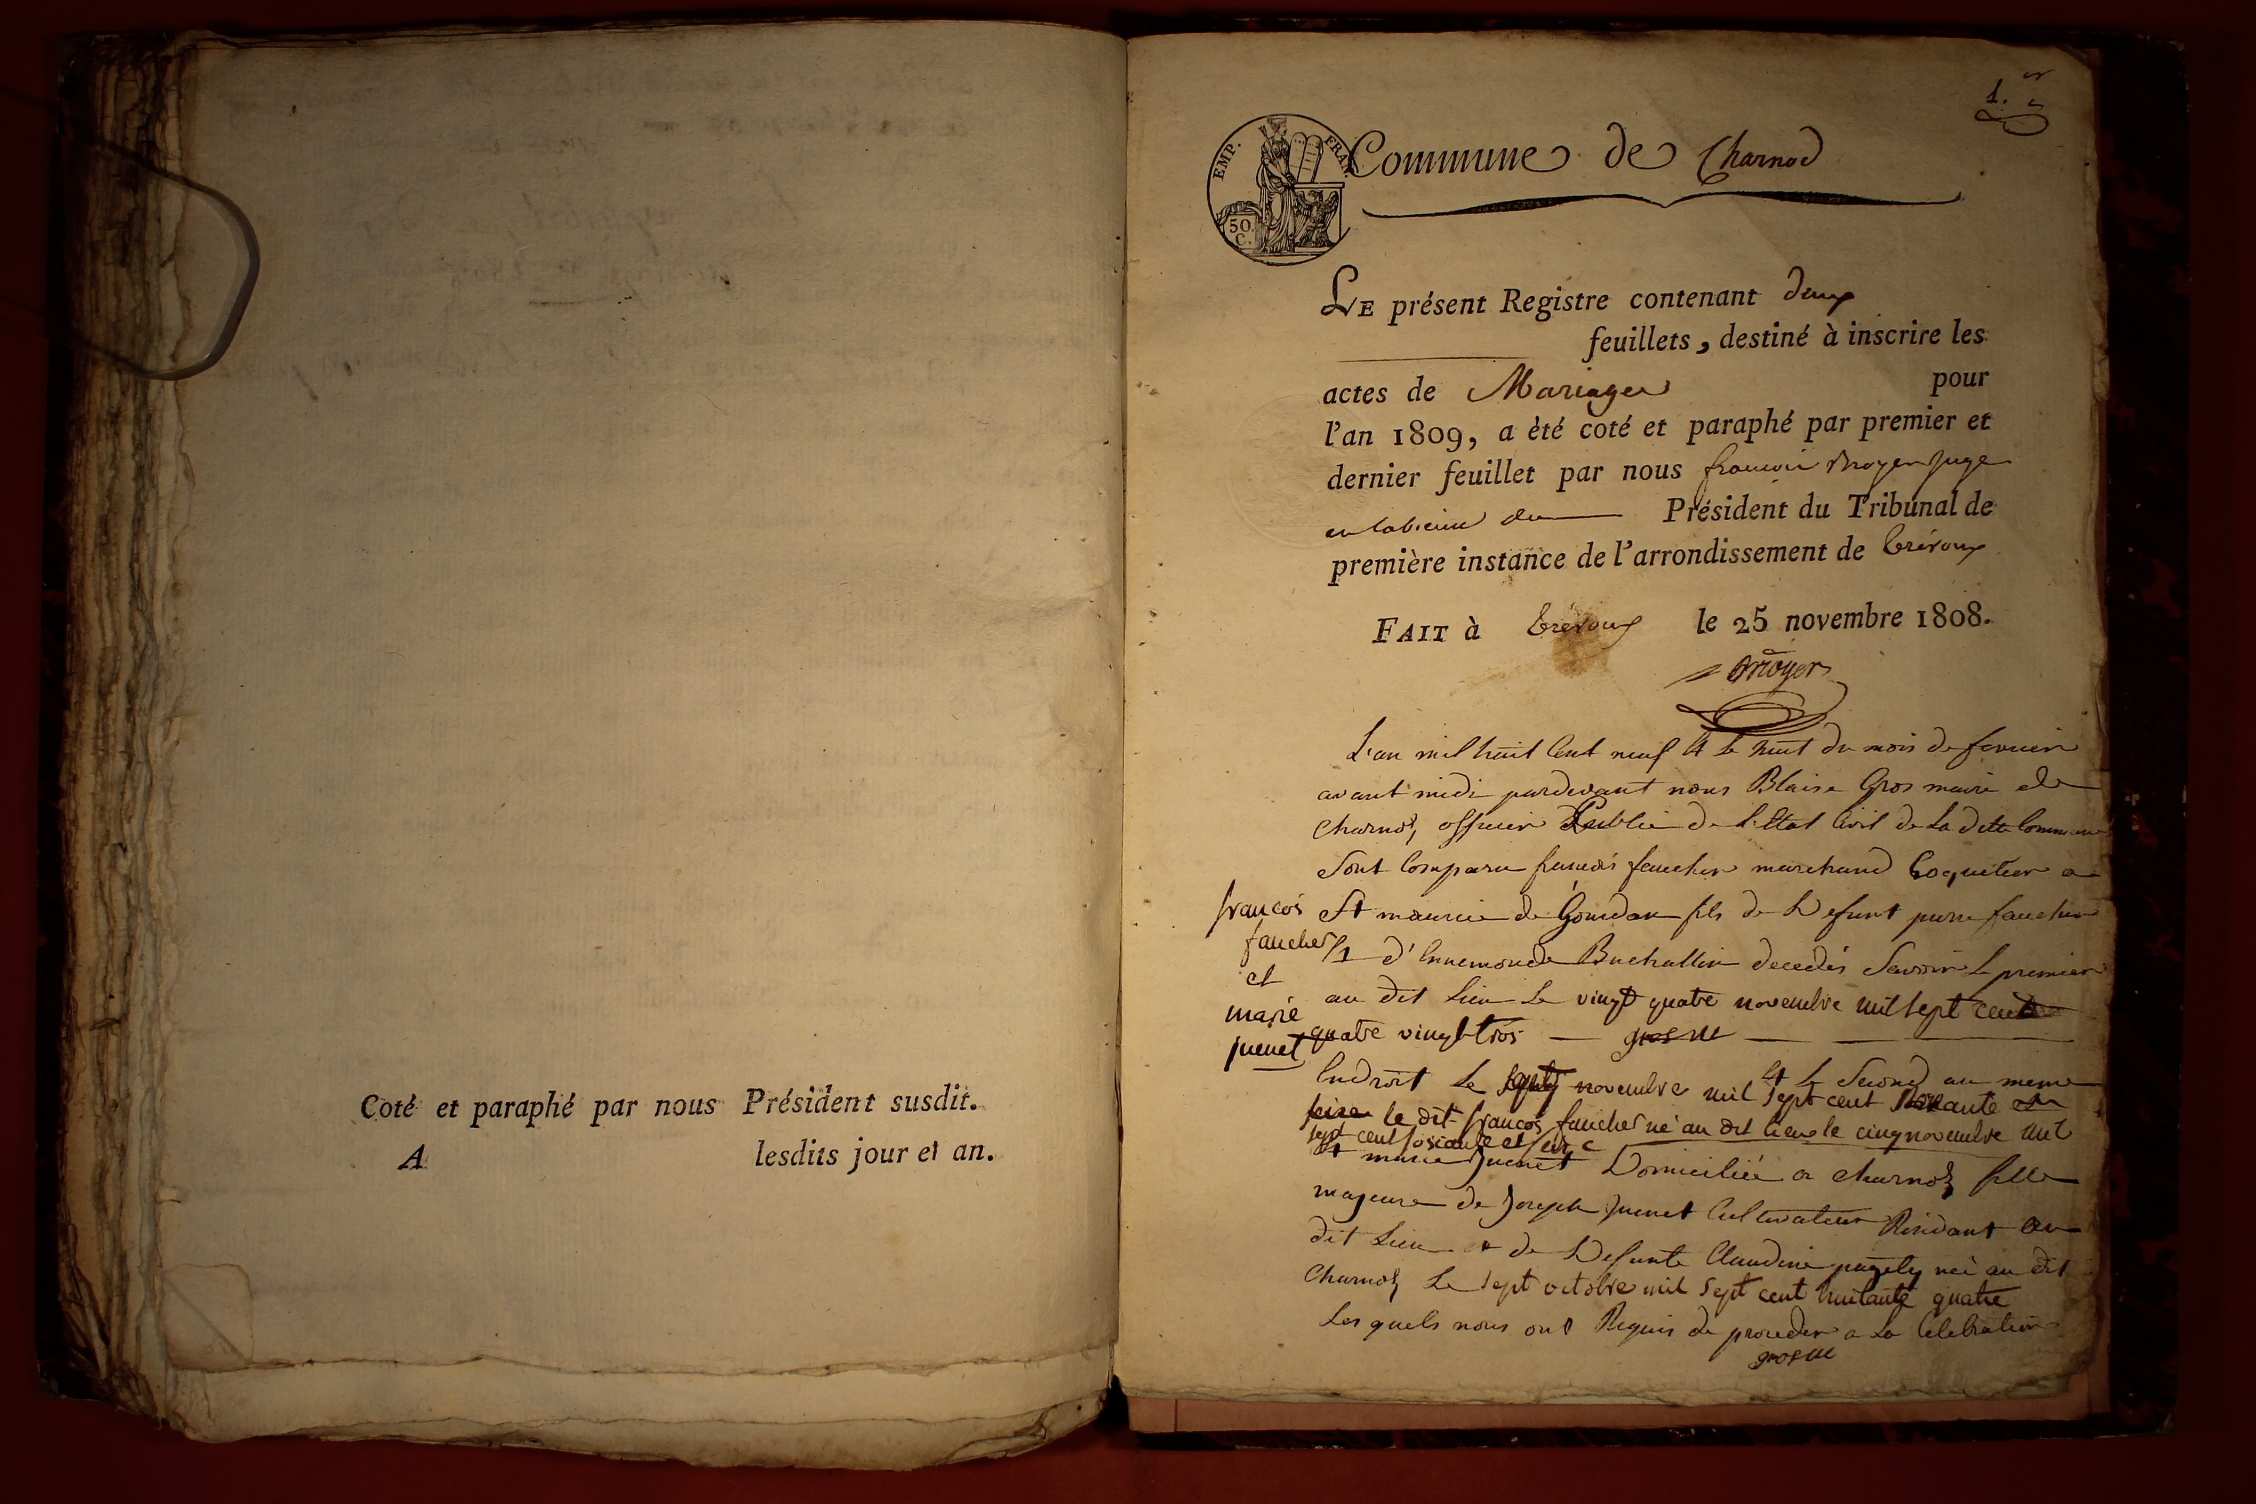 Coté et paraphé par nous Président susdit.
A lesdits jour et an.
1.er
EMP. FRAN.
50. C.
Commune de Charnod
LE présent Registre contenant deux
feuillets, destiné à inscrire les
actes de Mariages pour
l'an 1809, a èté coté et paraphé par premier et
dernier feuillet par nous françois juge
Président du Tribunal de
première instance de l'arrondissement de Trévoux
FAIT à Trévoux le 25 novembre 1808.
L'an mil huit Cent neuf et le huit du mois de fevrier
avant midi pardevant nous Blaise Gros maire de
Charnoz officier Public de L'Etat Civil de La dite Commune
Sont Comparu francois faucher marchand Coquetier a
françois
faucher
et
marie
juenet
St maurice de Gourdan fils de Defunt pierre faucher
et d'Ennemonde Buchallin decedés Savoir Le premier
au dit Lieu Le vingt quatre novembre mil sept cent
quatre vingt trois — gros m —
Et Le Second au meme
Endroit Le novembre mil sept cent
le dit françois faucher né au dit lieu le cinq novembre mil
sept cent soixante et
et marie juenet Domiciliée a Charnoz fille
majeure de Joseph juenet Cultivateur Residant au
dit Lieu et de Defunte Claudine née au dit
Charnoz Le sept octobre mil sept cent huitante quatre
Les quels nous ont Requis de proceder a La Celebration
gros m